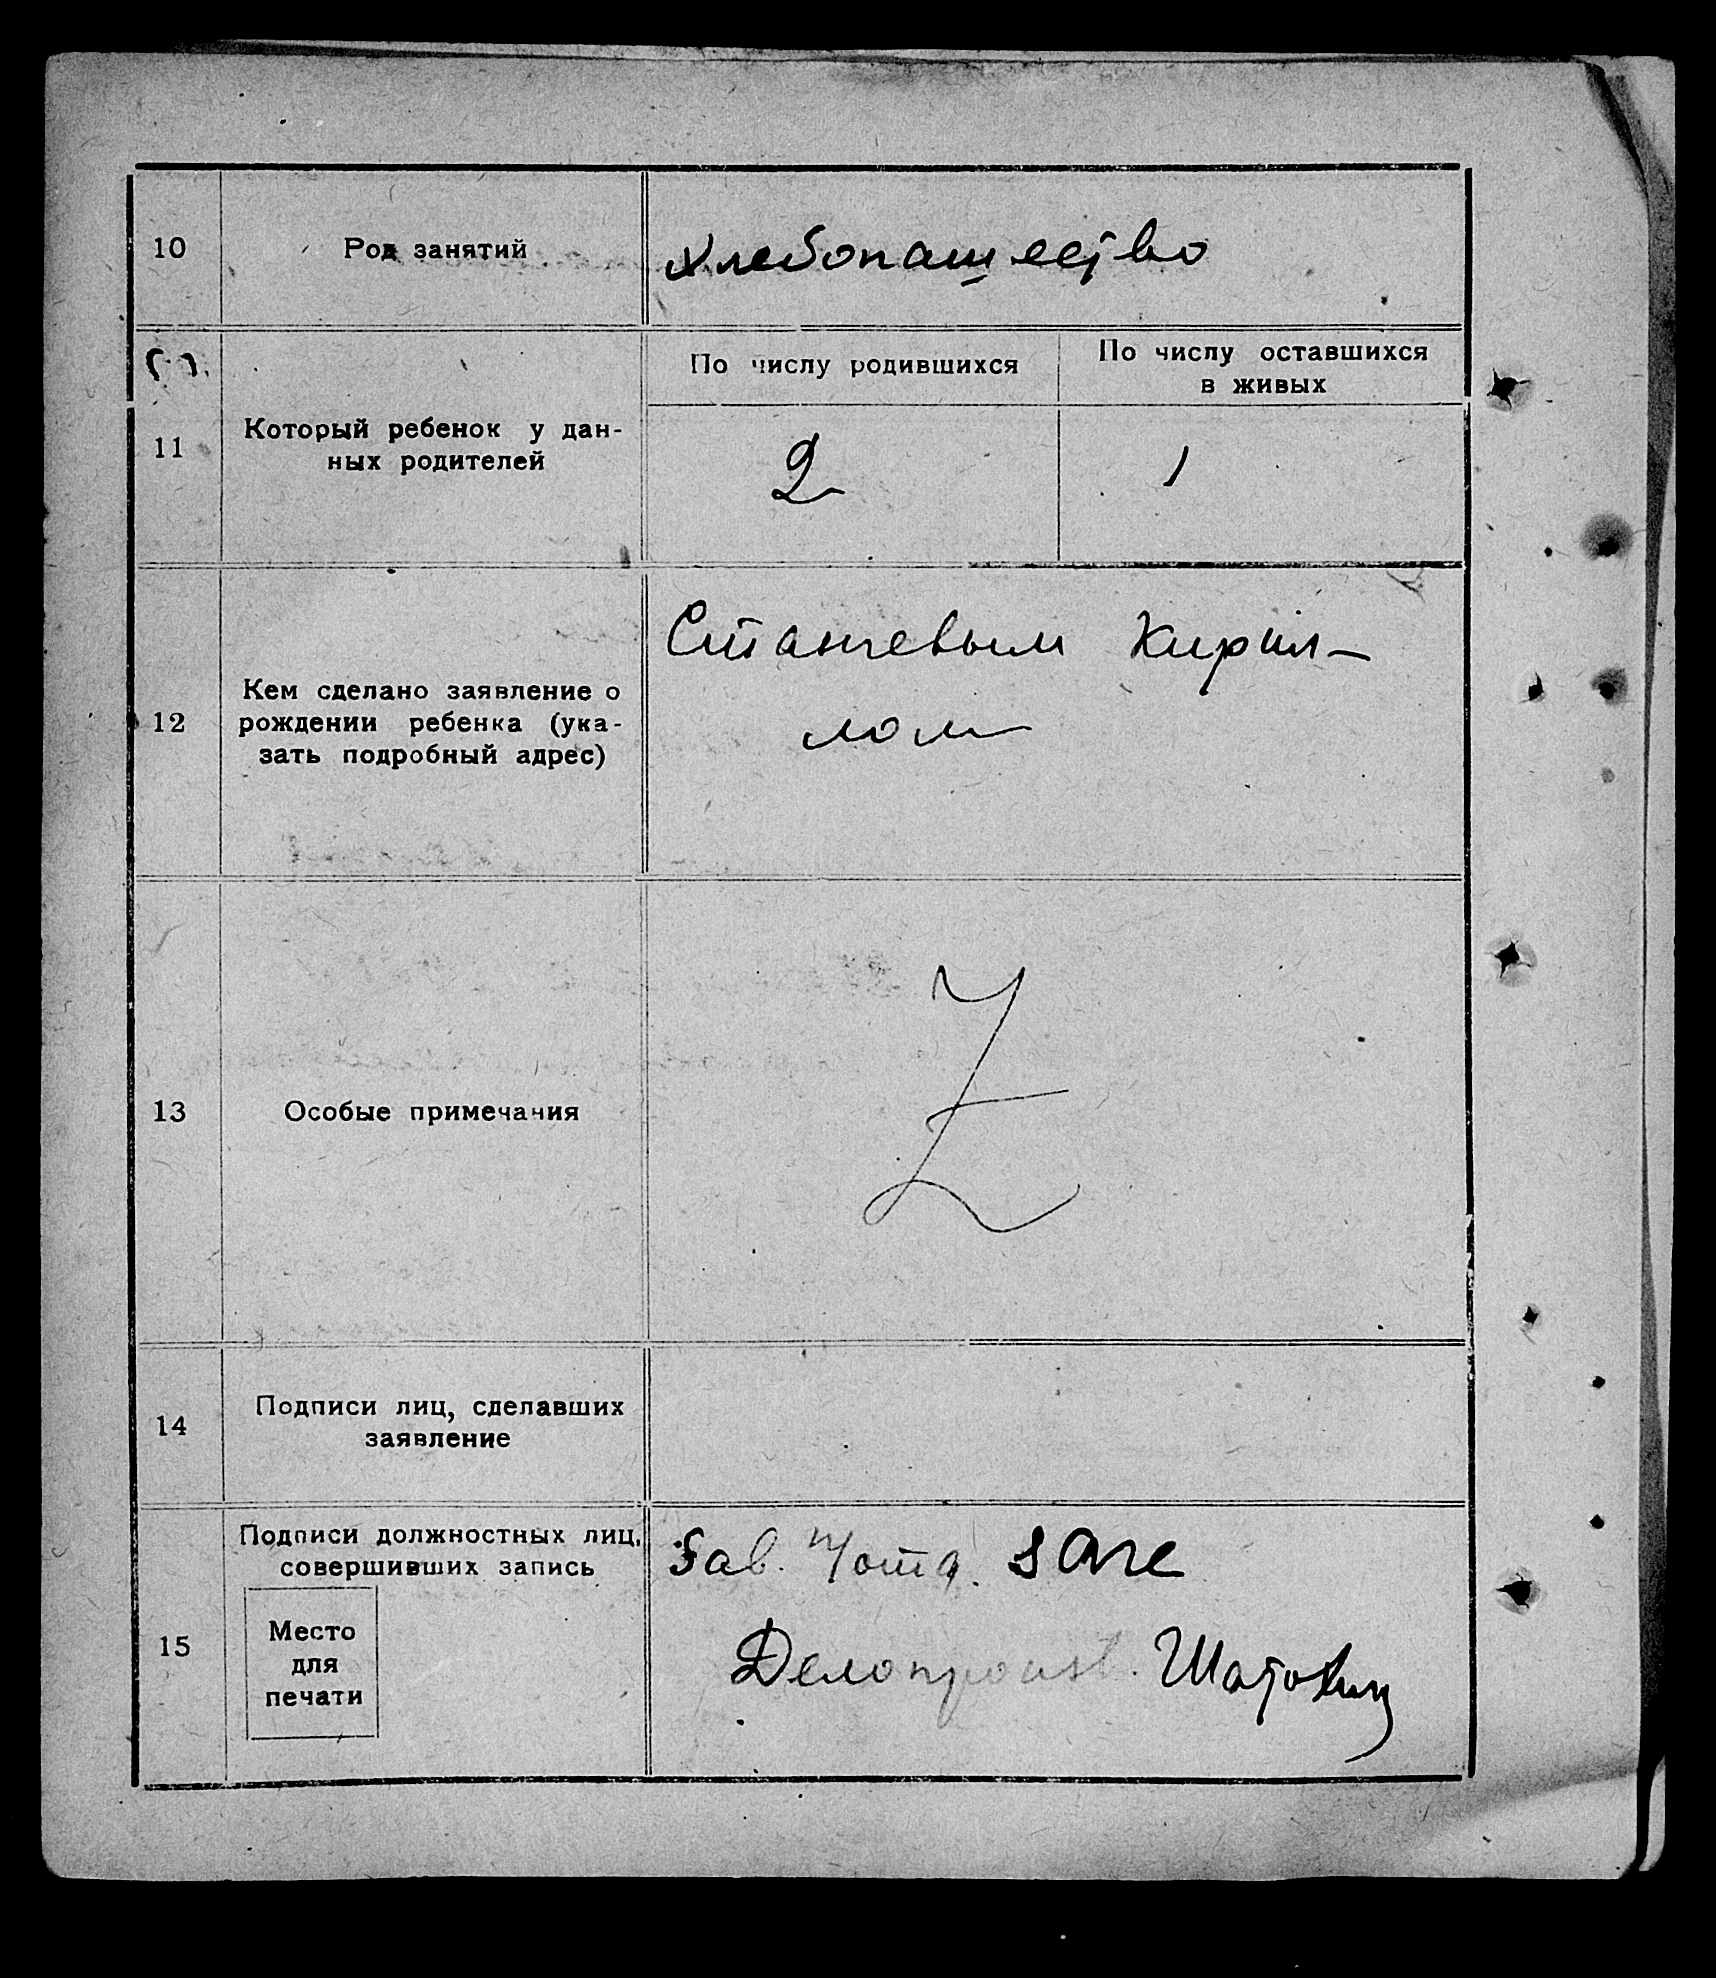 10 Род занятий хлебопашество
По числу родившихся
По числу оставшихся
в живых
11
Который ребенок у дан-
ных родителей
2
1
Станчевым Кирил-
лом
12
Кем сделано заявление о
рождении ребенка (ука-
зать подробный адрес)
13 Особые примечания
Z
14
Подписи лиц, сделавших
заявление
15
Подписи должностных лиц,
совершивших запись
Место
для
печати
Зав.
Делопроизв.